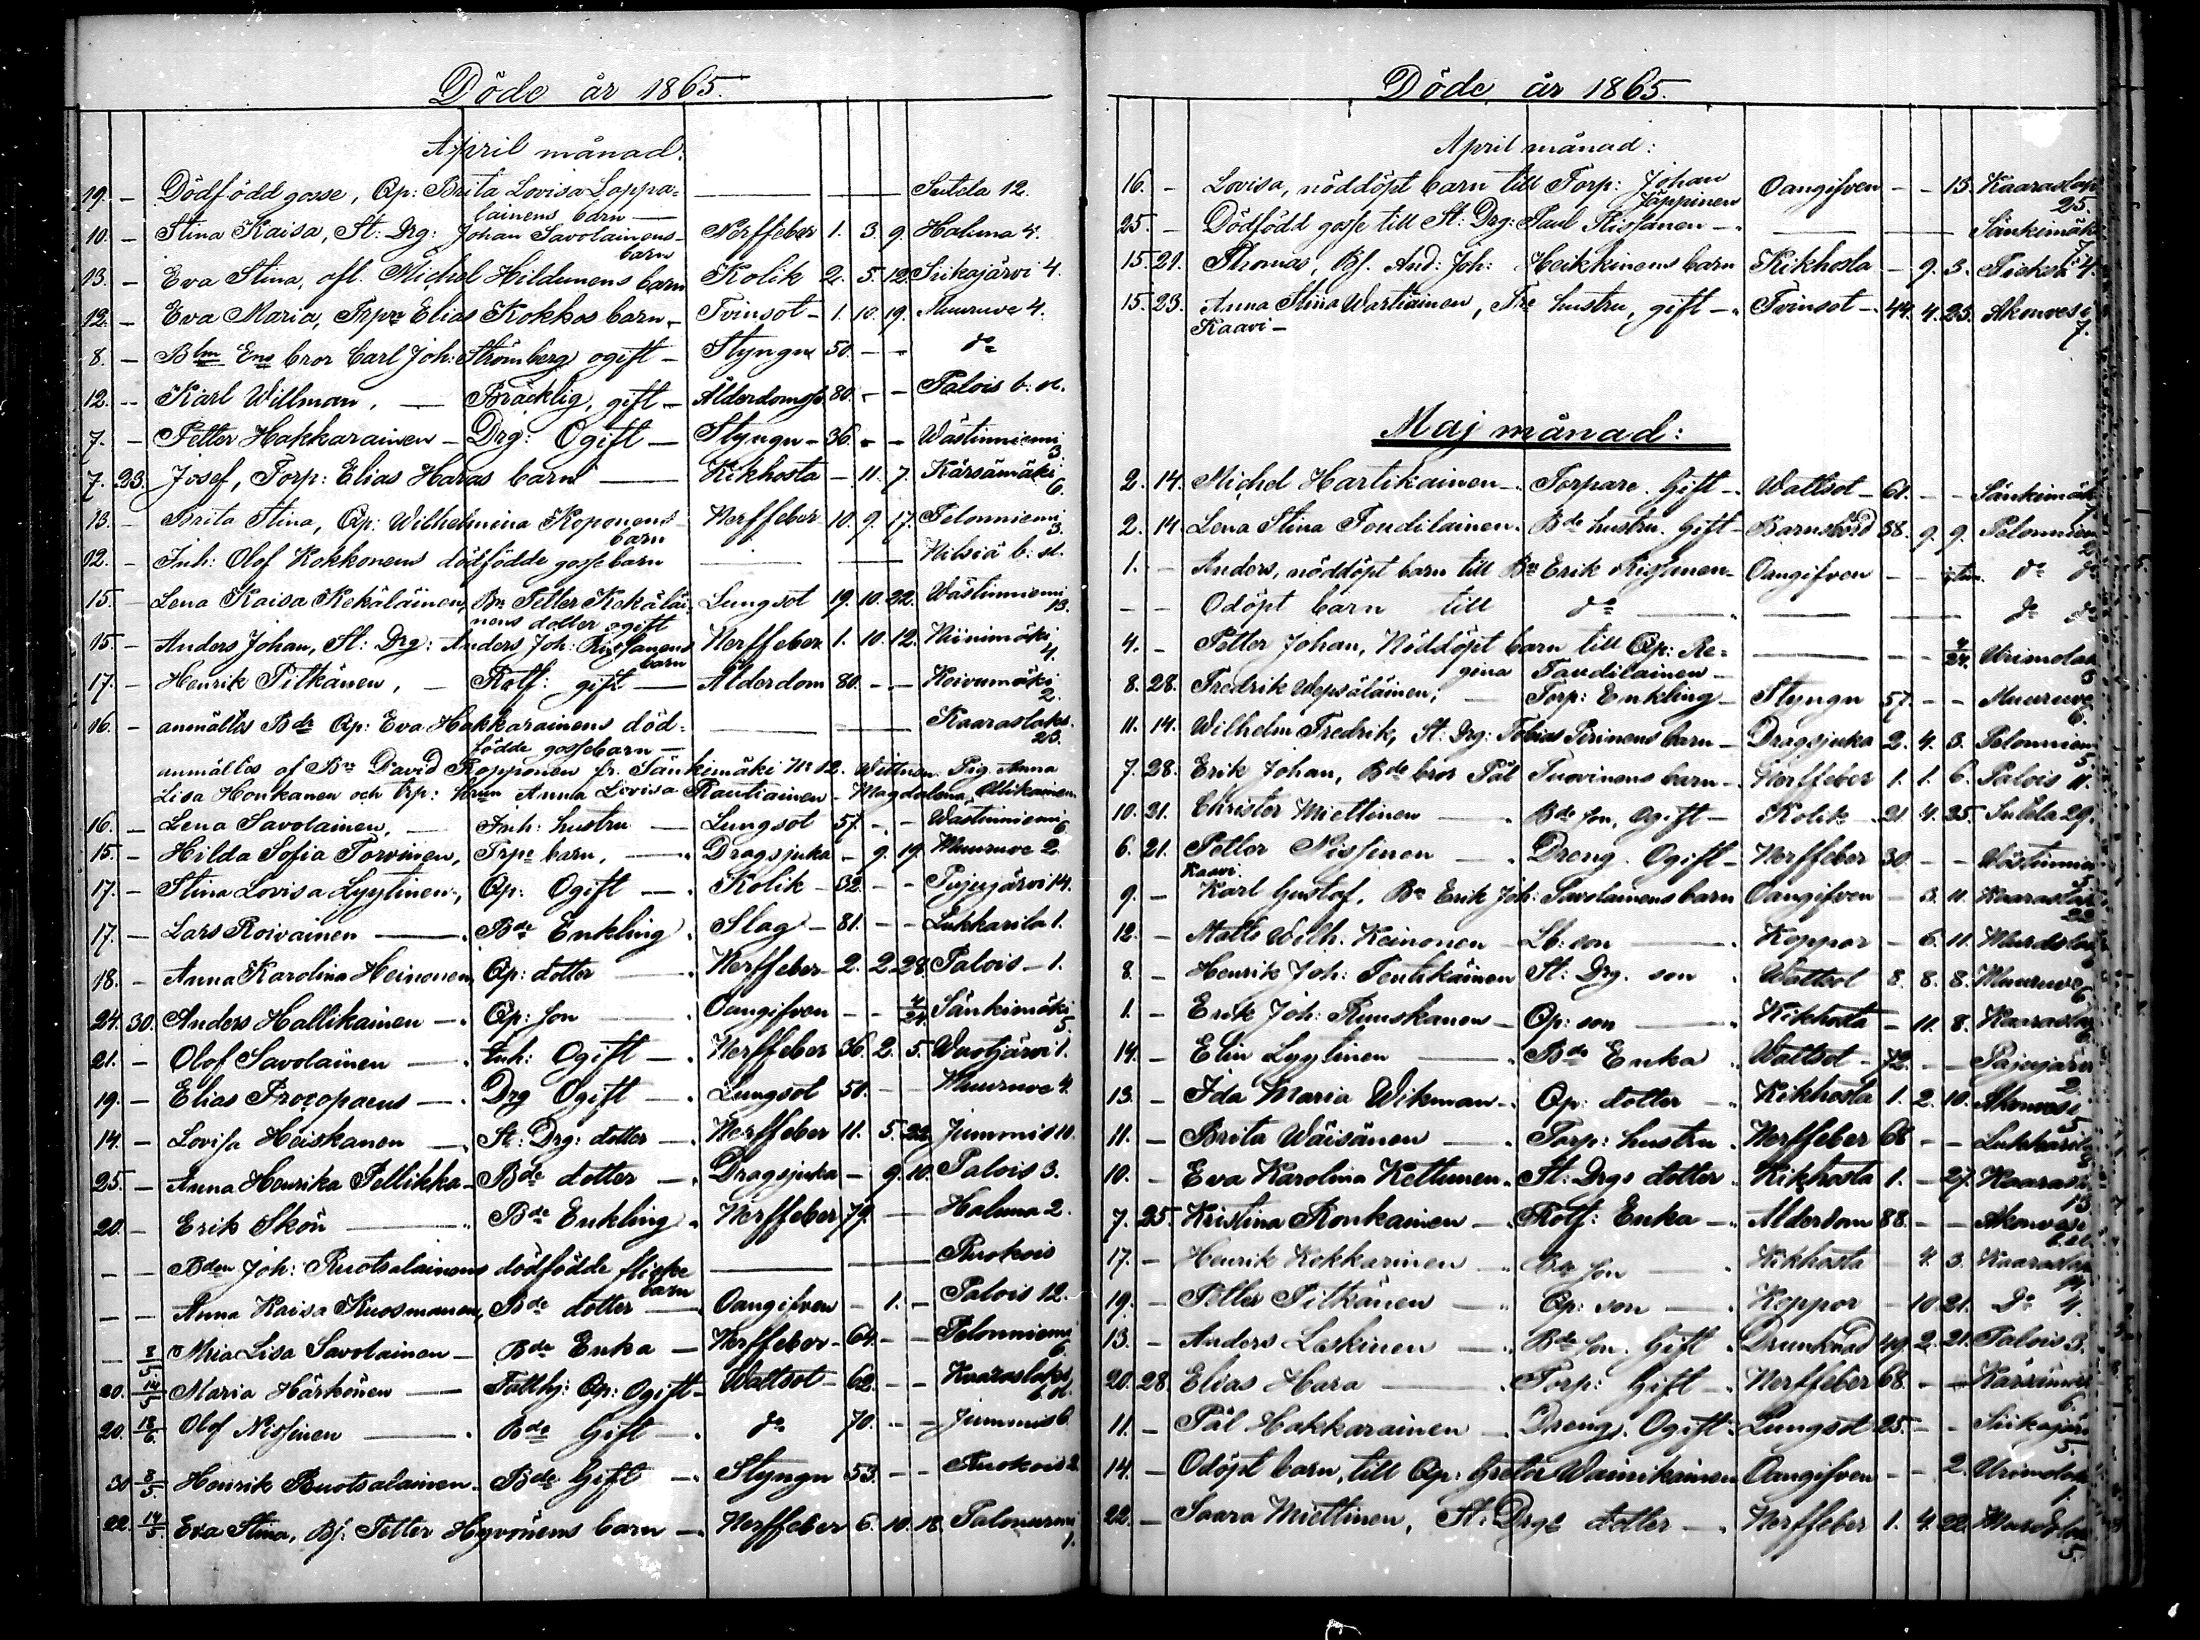 Döde år 1865.
April månad:
19. — Dödfödd gosse, Qp: Brita Lovisa Lappa= — — Sutela 12.
lainens barn —
10. — Stina Kaisa, St: Drg: Johan Savolainens Nerffeber 1. 3. 9. Haluna 4.
barn
13. — Eva Stina, afl. Michel Hildunens barn Kolik 2. 5. 12. Siikajärvi 4.
12. — Eva Maria, Trprs Elias Kokkos barn — Tvinsot — 1. 10. 19. Muuruve 4.
8. — Blm Ens bror Carl Joh: Strömberg ogift — Styngn 50. — — do
12. — Karl Willman, — Bräcklig, gift — Ålderdomsb. 80. — — Palois b: st.
7. — Petter Hakkarainen — Drg: Ogift — Styngn — 36. — — Wästinniemi
3.
7. 23. Josef, Torp: Elias Haras barn — Kikhosta — 11. 7. Kärsämäki
6.
13. — Brita Stina, Qp: Wilhelmina Koponens Nerffeber 10. 9. 17. Pelonniemi
barn 3.
12. — Inh: Olof Kokkonens dödfödde gossebarn — — Nilsiä b: st.
15. — Lena Kaisa Kekäläinen, Bn Petter Kekäläi- Lungsot 19. 10. 22. Wästinniemi
nens dotter ogift 13.
15. — Anders Johan, St: Drg: Anders Joh: Rissanens Nerffeber 1. 10. 12. Niinimäki
barn 4.
17. — Henrik Pitkänen, — Rotf: gift — Ålderdom 80. — — Koivumäki
2.
16. — anmältes Bde Qp: Eva Hakkarainens död= — — Kaaraslaks
födde gossebarn — 23.
anmältes af Bn David Ropponen fr. Sänkimäki No 12. Wittnen: Pig. Anna
Lisa Honkanen och Trp: hrun Anna Lovisa Rautiainen — Magdalena Ollikainen
16. — Lena Savolainen, — Inh: hustru — Lungsot 57. — — Wästinniemi
6.
15. — Hilda Sofia Torvinen, Trps barn, — Dragsjuka — 9. 19. Muuruve 2.
17. — Stina Lovisa Lyytinen, Qp: Ogift — Kolik — 32. — — Pajujärvi 14.
17. — Lars Roivainen — Bde Enkling. Slag — 81. — — Lukkarila 1.
18. — Anna Karolina Heinonen, Qp: dotter — Nerffeber 2. 2. 28. Palois — 1.
24. 30. Anders Hallikainen — Qp: son — Oangifven — — 4/24. Sänkimäki
5.
21. — Olof Savolainen — Inh: Ogift — Nerffeber 36. 2. 5. Wuotjärvi 1.
19. — Elias Procopaeus — Drg Ogift — Lungsot 51. — — Muuruve 4.
14. — Lovisa Heiskanen — St: Drg: dotter — Nerffeber 11. 5. 22. Jummis 10.
25. — Anna Henrika Pellikka — Bde dotter — Dragsjuka — 9. 10. Palois 3.
20. — Erik Skön — Bde Enkling. Nerffeber 79. — Haluna 2.
— — Bden Joh: Ruotsalainens dödfödde flicke — — Ruokois
barn
— — Anna Kaisa Kuosmanen, Bde dotter — Oangifven — 1. — Palois 12.
— 8/5 Maria Lisa Savolainen — Bde Enka — Nerffeber — 64. — — Pelonniemi
6.
20. 14/5 Maria Härkönen — Fatthj: Qp: Ogift — Wattsot — 62. — — Kaaraslaks
b. st.
20. 18/6. Olof Nissinen — Bde Gift — do 70. — — Jummis 6.
30 8/5. Henrik Ruotsalainen — Bde Gift — Styngn 53. — — Ruokois 2.
22. 14/5 Eva Stina, Bf: Petter Hyvönens barn — Nerffeber 6. 10. 18. Palonurmi
1.
Döde år 1865.
April månad:
16. — Lovisa, nöddöpt barn till Torp: Johan Oangifven — — 13. Kaaraslaks
Jäppinen 25.
25. — Dödfödd gosse till St: Drg: Paul Rissanen — — — Sänkimäki
7.
15. 21. Thomas, Bf. And: Joh: Heikkinens barn Kikhosta — 9. 3. 4.
15. 23. Anna Stina Wartiainen, Trs hustru, gift — Tvinsot — 44. 4. 25. Akonvesi
Kaavi — 7.
Maj månad:
2. 14. Michel Hartikainen — Torpare. Gift — Wattsot — 61. — — Sänkimäki
7.
2. 14. Lena Stina Toudilainen. Bde hustru. Gift — Barnsbörd 38. 9. 9. Pelonniemi
2.
1. — Anders, nöddöpt barn till Bn Erik Rissanen — Oangifven — — do do
— — Odöpt barn till do — — — do do
4. — Petter Johan, Nöddöpt barn till Qp: Re= — — — 4/24. Urimolaks
gina Taudilainen —
8. 28. Fredrik Wepsäläinen, — Torp: Enkling — Styngn 57. — — Muuruve
6.
11. 14. Wilhelm Fredrik, St: Drg: Tobias Pirinens barn — Dragsjuka 2. 4. 3. Pelonniemi
5.
7. 28. Erik Johan, Bde bror Pål Tuovinens barn — Nerffeber 1. 1. 6. Palois 11.
10. 21. Christer Miettinen — Bde son, Ogift — Kolik — 21. 4. 25. Sutela 29.
6. 21. Petter Nissinen — Dreng. Ogift — Nerffeber 30. — — Wästinniemi
Kaavi.
9. — Karl Gustaf, Bn Erik Joh: Savolainens barn Oangifven — 3. 11. Kaaraslaks
22.
12. — Matts Wilh. Keinonen — Lb: son — Koppor — 6. 11. Murdolaks
8. — Henrik Joh: Pentikäinen St: Drg. son — Wattsot 8. 8. 8. Muuruve
6.
1. — Erik Joh: Ruuskanen — Qp: son — Kikhosta — 11. 8. Kaaraslaks
6.
14. — Elin Lyytinen — Bde Enka. Wattsot — 72. — — Pajujärvi
2.
13. — Ida Maria Wikman — Qp: dotter — Kikhosta 1. 2. 10. Akonvesi
5.
11. — Brita Wäisänen — Torp: hustru. Nerffeber 68 — — Lukkarila
8.
10. — Eva Karolina Kettunen. St: Drgs dotter. Kikhosta 1. — 27. Kaaraslaks
13.
7. 25. Kristina Ronkainen — Rotf: Enka — Ålderdom 88. — — Akonvesi
b. st.
17. — Henrik Kokkarinen — Bde son — Kikhosta — 4. 3. Kaaraslaks
14.
19. — Petter Pitkänen — Qp: son — Koppor — 10. 21. Do 4.
13. — Anders Laskinen — Bde son. Gift — Drunknad 49. 2. 21. Palois 3.
20. 28. Elias Hara — Torp: Gift — Nerffeber 68. — — Kärsämäki
6.
11. — Pål Hakkarainen — Dreng. Ogift. Lungsot 25. — — Siikajärvi
5.
14. — Odöpt barn, till Qp: Greta Wainikainen Oangifven — — 2. Urimolaks
1.
22. — Saara Miettinen, St: Drgs dotter — Nerffeber 1. 4. 22. Murdolaks
5.